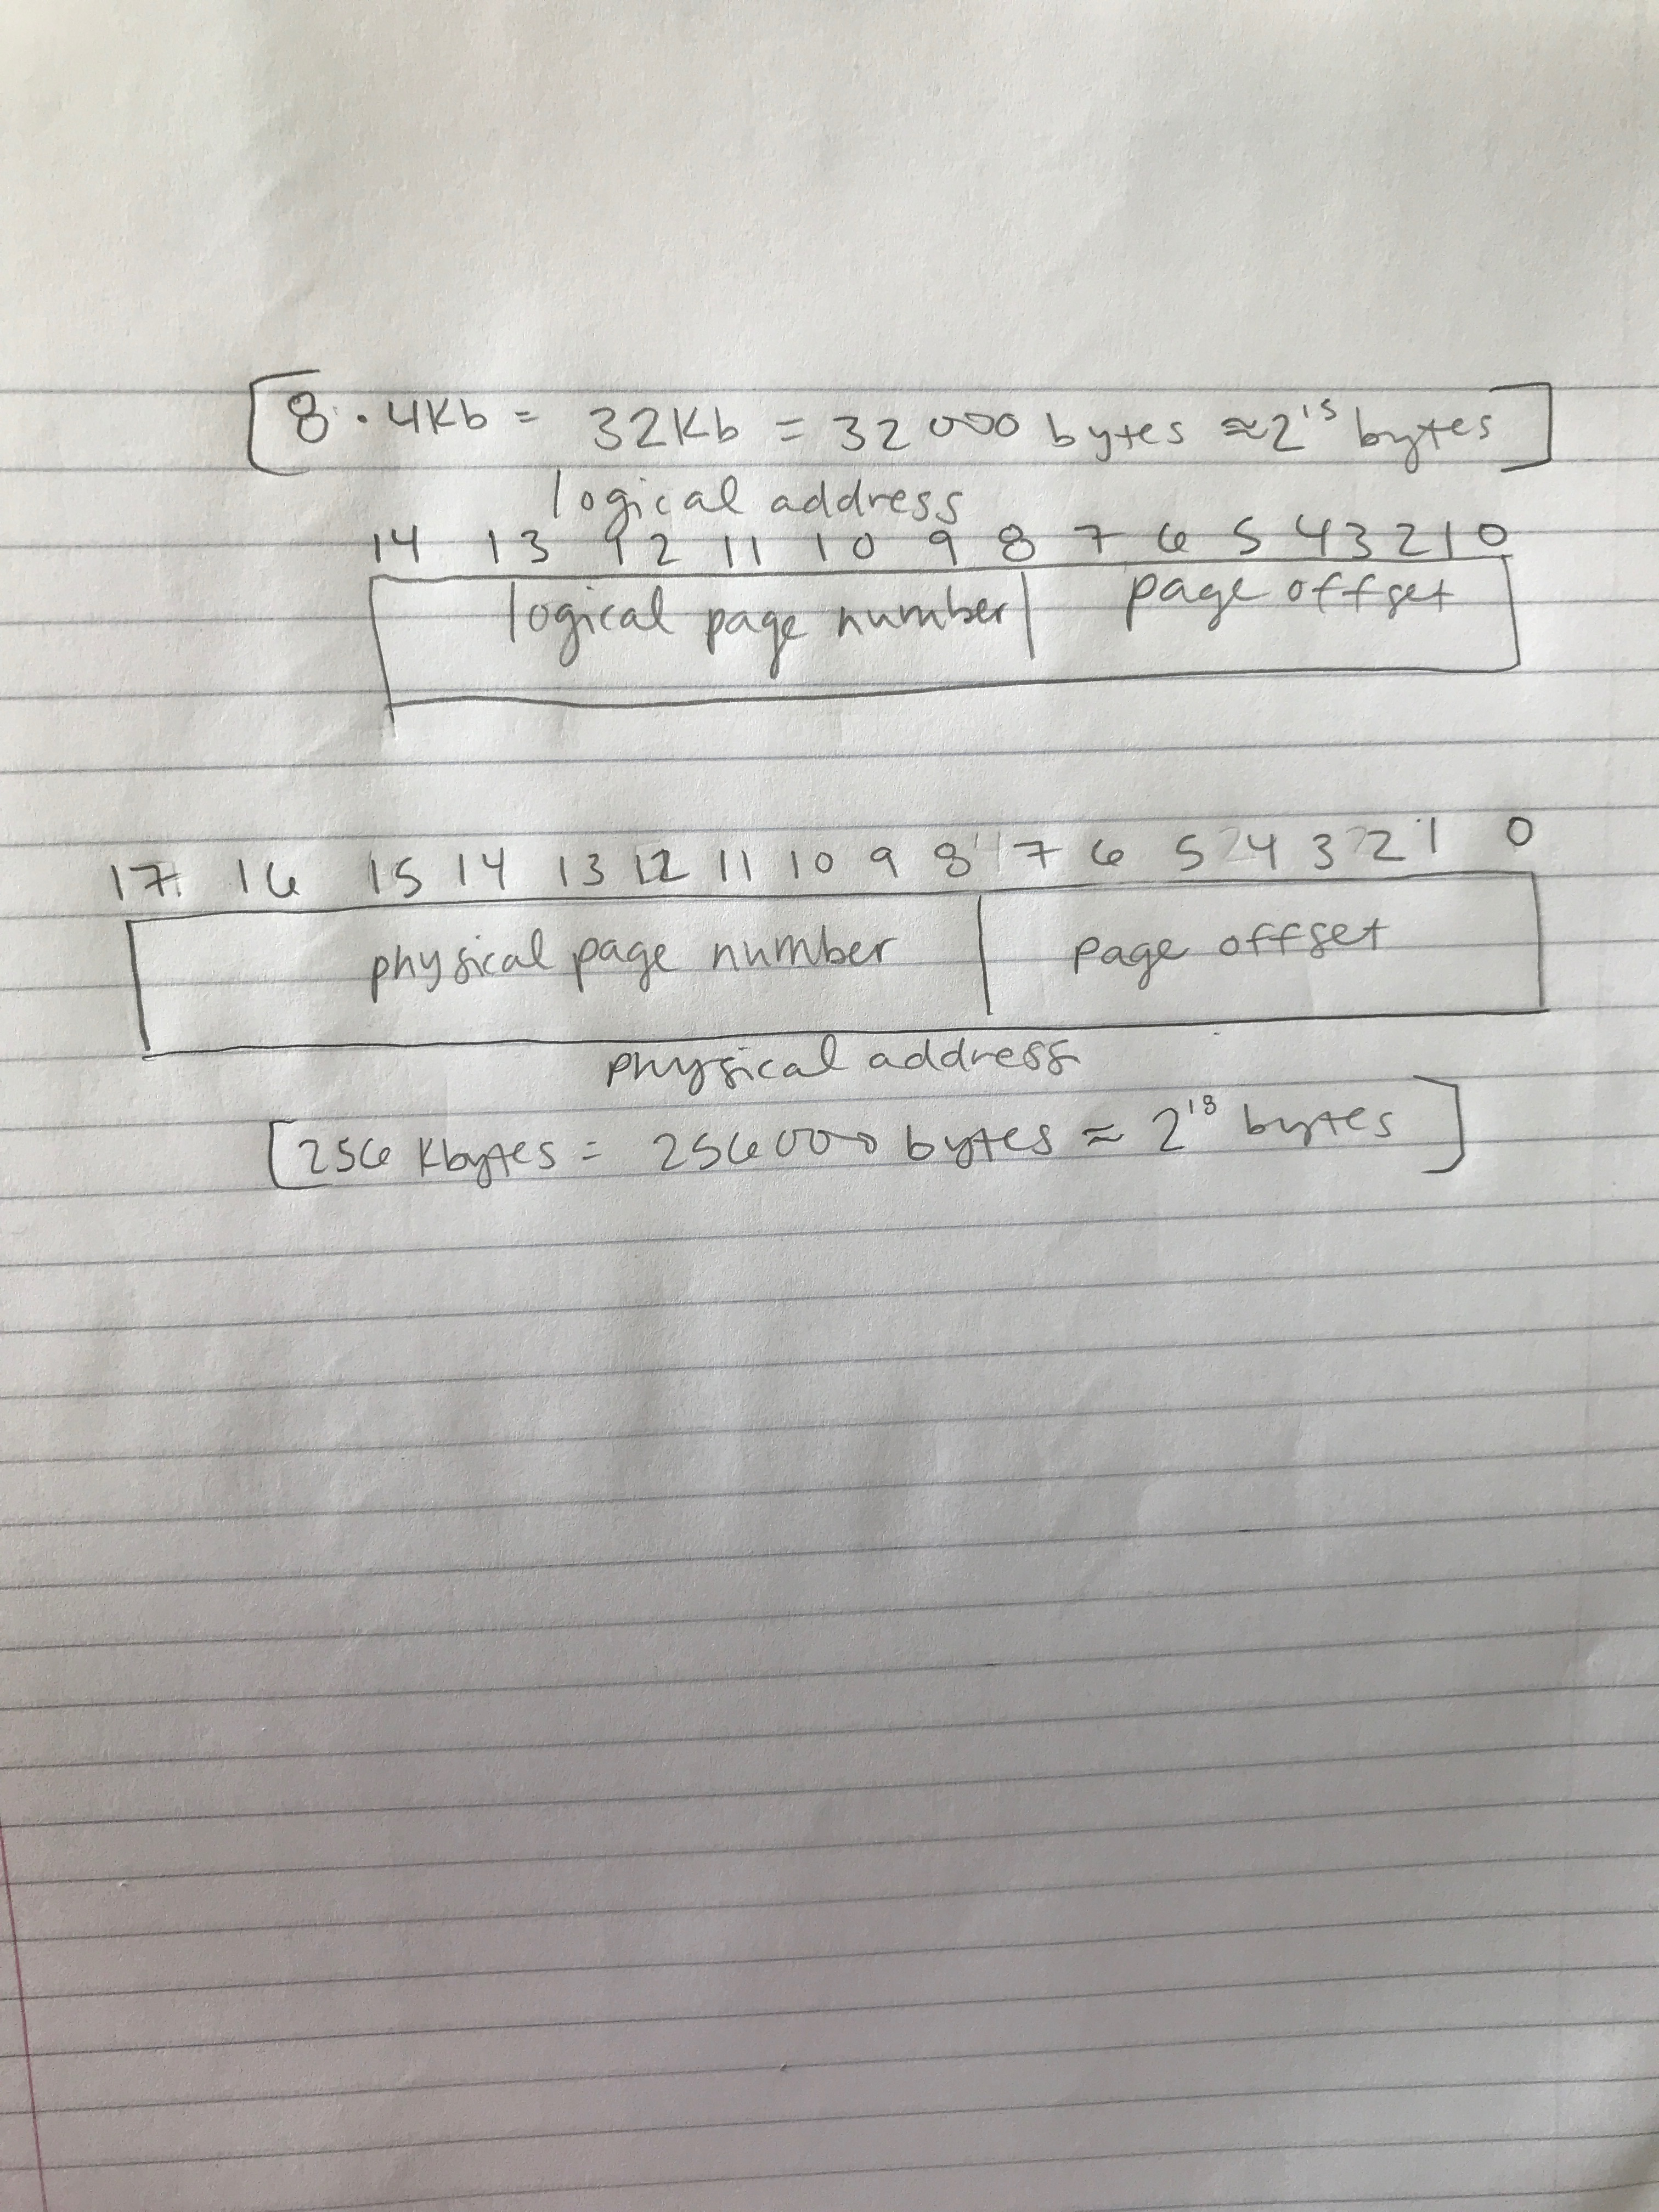 [8 · 4Kb = 32Kb = 32000 bytes ≈ 2¹⁵ bytes]
logical address
14 13 12 11 10 9 8 7 6 5 4 3 2 1 0
logical page number page offset
17 16 15 14 13 12 11 10 9 8 7 6 5 4 3 2 1 0
physical page number page offset
physical address
[256 Kbytes = 256000 bytes ≈ 2¹⁸ bytes]